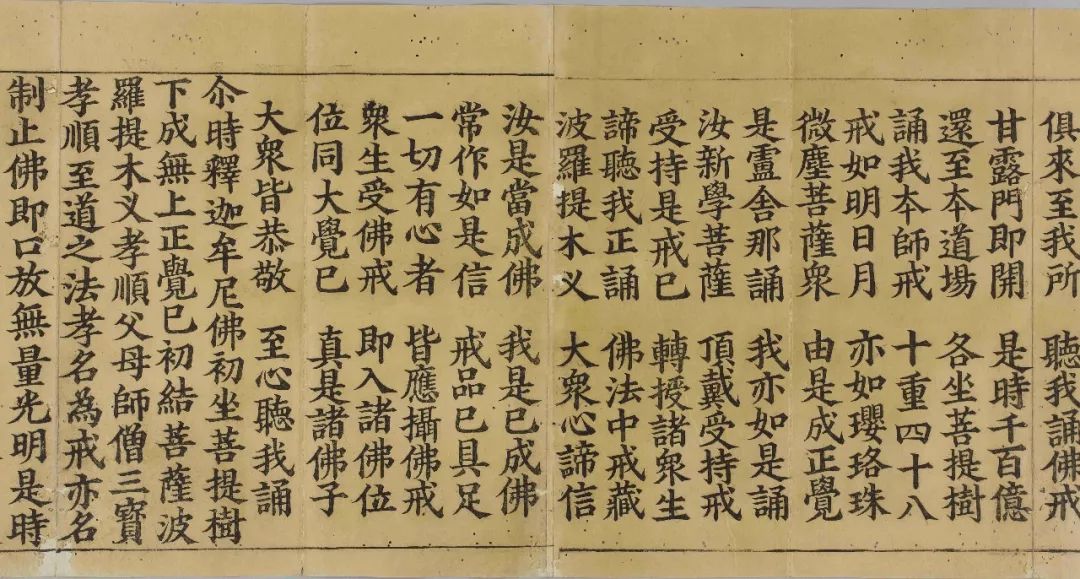 俱來至我所 聽我誦佛戒
甘露門即開 是時千百億
還至夲道場 各坐菩提樹
誦我夲師戒 十重四十八
戒如明日月 亦如瓔珞珠
微塵菩薩衆 由是成正覺
是盧舍那誦 我亦如是誦
汝新學菩薩 頂戴受持戒
受持是戒已 轉授諸衆生
諦聽我正誦 佛法中戒藏
波羅提木叉 大衆心諦信
汝是當成佛 我是已成佛
常作如是信 戒品已具足
一切有心者 皆應攝佛戒
衆生受佛戒 即入諸佛位
位同大覺已 真是諸佛子
大衆皆恭敬 至心聽我誦
尒時釋迦牟尼佛初坐菩提樹
下成無上正覺已初結菩薩波
羅提木叉孝順父母師僧三寶
孝順至道之法孝名為戒亦名
制止佛即口放無量光明是時